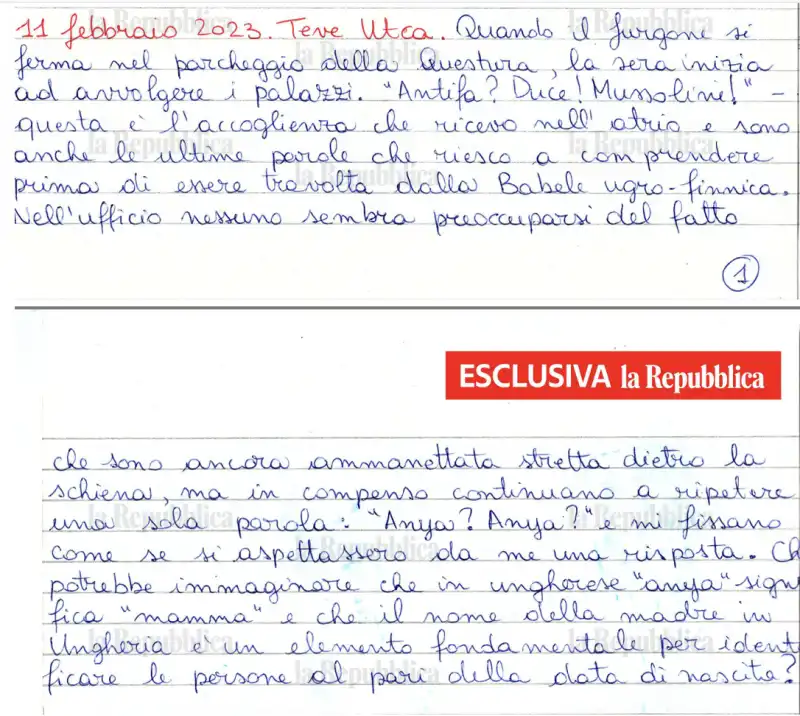 11 febbraio 2023. Teve Utca. Quando il furgone si
ferma nel parcheggio della Questura, la sera inizia
ad avvolgere i palazzi. "Antifa? Duce! Mussolini!" -
questa è l'accoglienza che ricevo nell'atrio e sono
anche le ultime parole che riesco a comprendere
prima di essere travolta dalla Babele ugro-finnica.
Nell'ufficio nessuno sembra preoccuparsi del fatto
1
ESCLUSIVA la Repubblica
che sono ancora ammanettata stretta dietro la
schiena, ma in compenso continuano a ripetere
una sola parola: "Anya? Anya?" e mi fissano
come se si aspettassero da me una risposta. Ch
potrebbe immaginare che in ungherese "anya" sign
fica "mamma" e che il nome della madre in
Ungheria è un elemento fondamentale per ident
ficare le persone al pari della data di nascita?